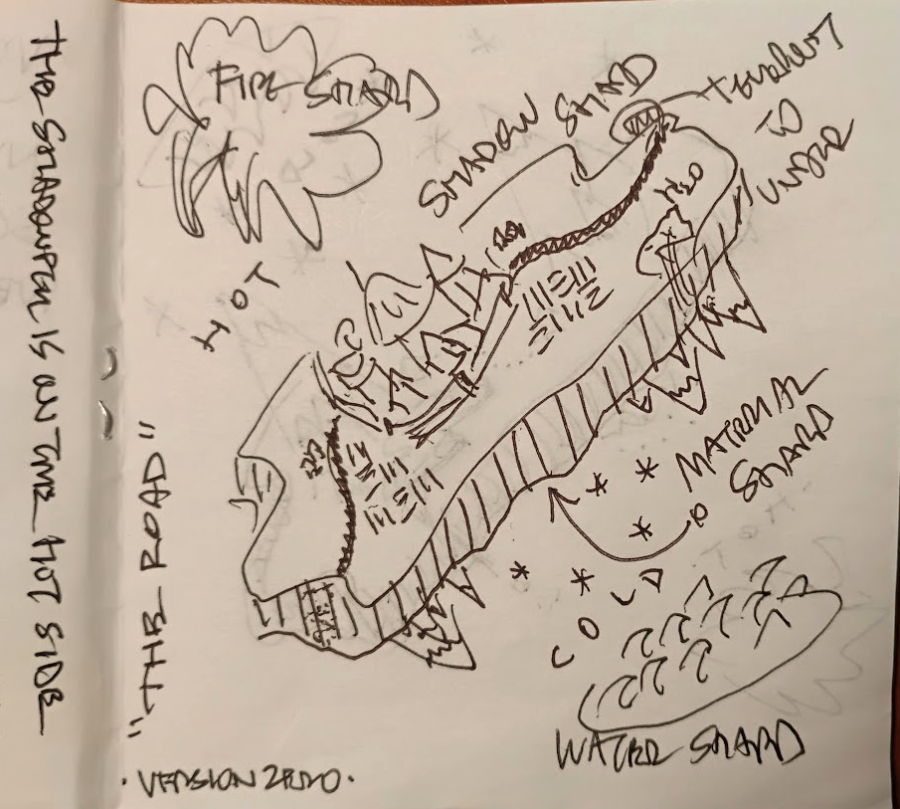 THE SHADOWFELL IS ON THE HOT SIDE
FIRE SHARD
SHADOW SHARD
UNDER
H2O
HOT
"THE ROAD"
MATERIAL
SHARD
COLD
WATER SHARD
·VERSION ZERO·